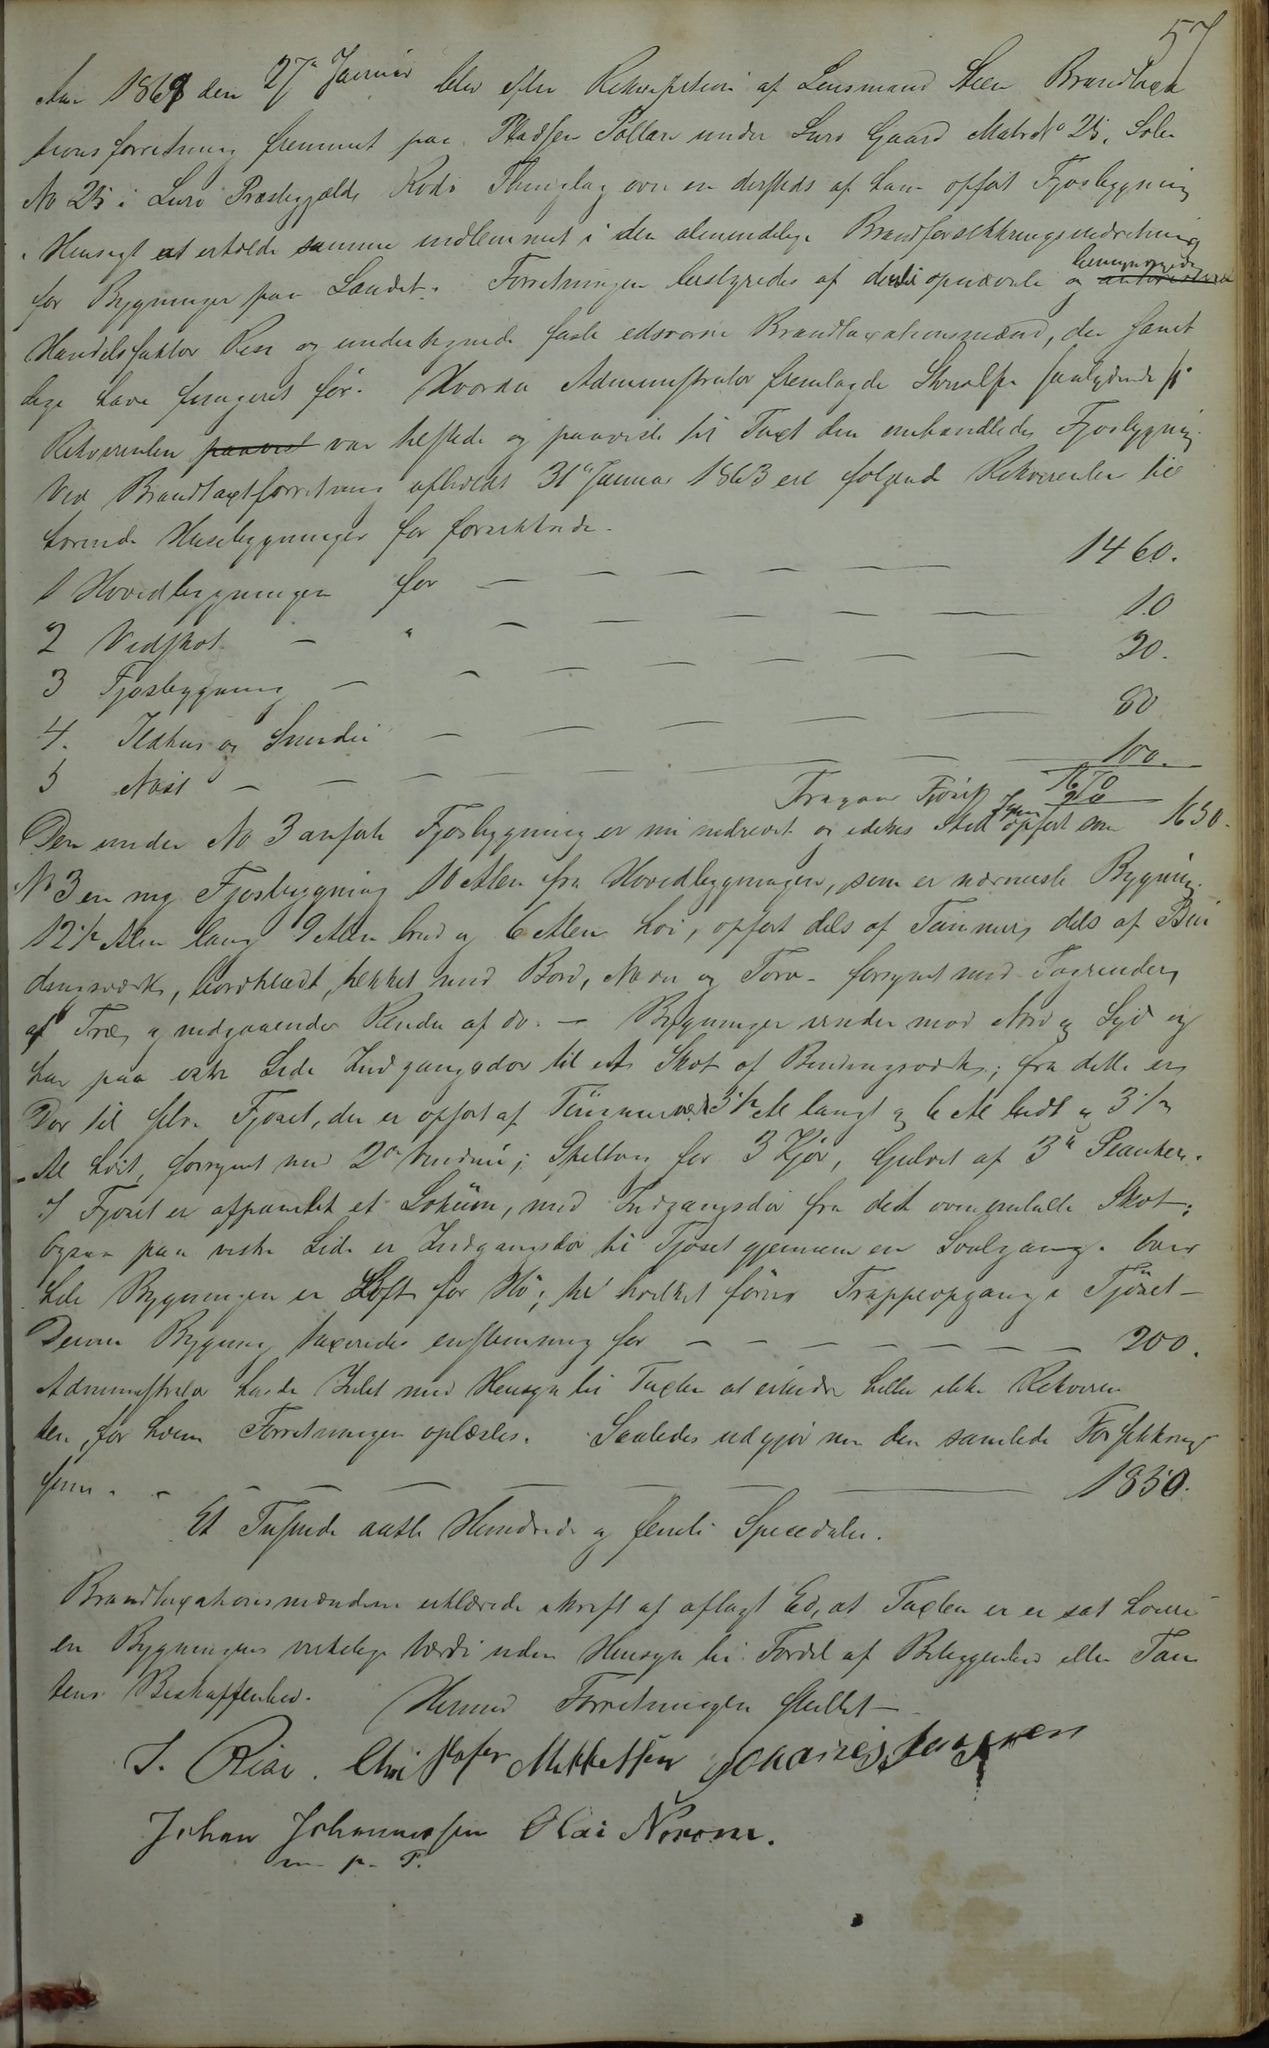 57
Aar 1868 den 27de Januar blev efter Rekvisition af Lensmand Steen Brandtaxa
tionsforretning fremmet paa Pladsen Pollan under Lurø Gaard Matr No 25, Løbe
No 25 i Lurø Præstegjeld Rødø Thinglag over en dersteds af ham opført Fjøsbygning
i Hensigt at erholde samme indlemmet i den almindelige Brandforsikkringsindretning
for Bygninger paa Landet. Forretningen bestyredes af dertil opnævnte og
Handelsfaktor Riise og undertegnede faste edsvorne Brandtaxationsmænd, der samt
lige have fungeret før. Hvorda Administrator fremlagde Skrivelse saalydende
Rekvirenten paaviste var tilstede og paaviste til Taxt den omhandlede Fjøsbygning.
Ved Brandtaxtforretning afholdt 31te Januar 1863 ere følgende Rekvirenten til
hørende Husebygninger før forsikkrede.
1 Hovedbygningen for — — — — — — 1460.
2 Vedskot — " — — — — — — 10
3 Fjøsbygning — — — — — — — 20.
4. Ildhus og Smedie — — — — — — 80
5 Nøst — — — — — — — 100.
1670
Fragaar Fjøset 20
Den under No 3 anførte Fjøsbygning er nu nedrevet og i dens Sted igjen opført som 1650.
No 3 en ny Fjøsbygning 10 Alen fra Hovedbygningen, som er nærmeste Bygning.
12½ Alen lang 9 Alen bred og 6 Alen høi, opført dels af Tømmer, dels af Bin
dingsværk, bordklædt, tækket med Bord, Næver og Torv. forsynet med Tagrender
af Træ, og nedgaaende Render af do. — Bygningen vender mod Nord og Syd og
har paa østre Side Indgangsdør til et Skot af Bindingsværk; fra dette er
Dør til selve Fjøset, der er opført af Tømmer 3½ Al langt og 6 Al bredt og 3½
Al høit, forsynet med 2de Vinduer; Spiltoug for 3 Kjør, Gulvet af 3" Planker.
I Fjøset er afpanelet et Lokum, med Indgangsdør fra det ovenomtalte Skot;
Ogsaa paa vestre Side er Indgangsdør til Fjøset gjennem en Svalgang. Over
hele Bygningen er Loft for Hø; til hvilket fører Trappeopgang i Fjøset —
Denne Bygning taxeredes enstemmig for — — — — — — 200.
Administrator havde Intet med Hensyn til Taxten at erindre heller ikke Rekviren
ten, for hvem Forretningen oplæstes. Saaledes udgjør nu den samlede Forsikkrings
sum. — — — — — — — 1850.
Et Tusinde aatte Hundrede og femti Speciedaler.
Brandtaxationsmændene erklærede i Kraft af aflagt Ed, at Taxten er sat
en Bygningens virkelige Værdi uden Hensyn til Fordel af Beliggenhed eller Tom
tens Beskaffenhed. Hermed Forretningen sluttet —
I. Riise. Christofer Mikkelsen Johannes
Johan Johannessen Olai Norom.
m. p. P.